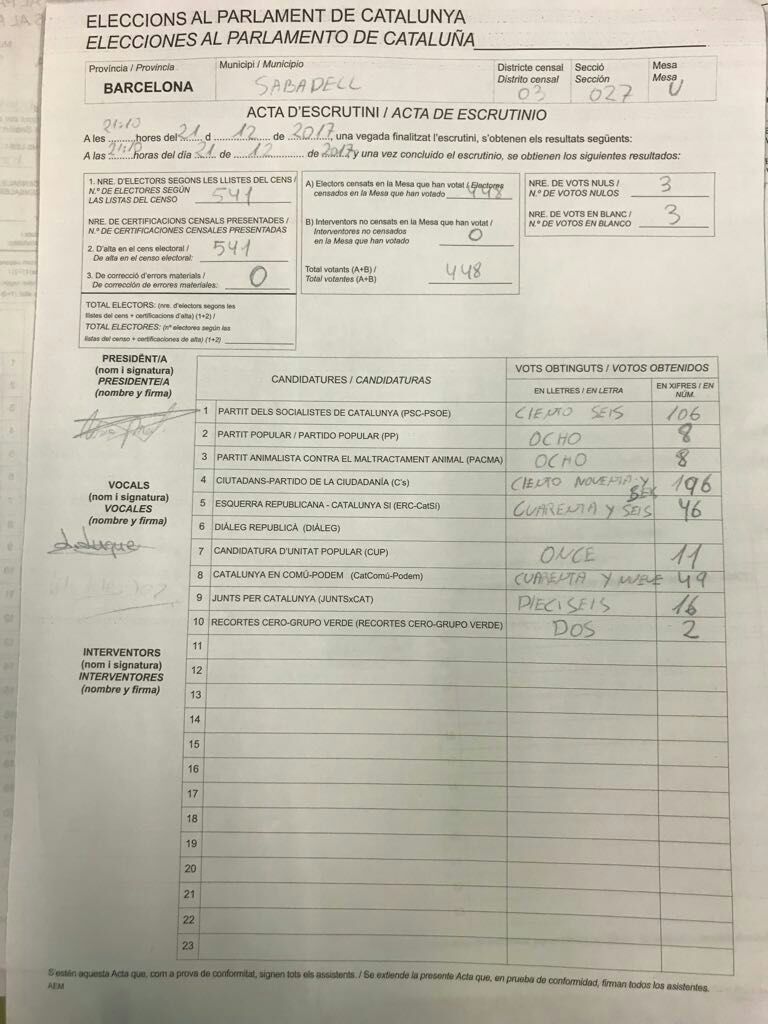 ELECCIONS AL PARLAMENT DE CATALUNYA
ELECCIONES AL PARLAMENTO DE CATALUÑA
Província / Provincia
BARCELONA
Municipi / Municipio
SABADELL
Districte censal
Distrito censal
03
Secció
Sección
027
Mesa
Mesa
U
ACTA D'ESCRUTINI / ACTA DE ESCRUTINIO
A les 21:10 hores del 21 d 12 de 2017, una vegada finalitzat l'escrutini, s'obtenen els resultats següents:
A las 21:10 horas del día 21 de 12 de 2017 y una vez concluido el escrutinio, se obtienen los siguientes resultados:
1. NRE. D'ELECTORS SEGONS LES LLISTES DEL CENS /
N.º DE ELECTORES SEGÚN
LAS LISTAS DEL CENSO 541
NRE. DE CERTIFICACIONS CENSALS PRESENTADES /
N.º DE CERTIFICACIONES CENSALES PRESENTADAS
2. D'alta en el cens electoral /
De alta en el censo electoral: 541
3. De correcció d'errors materials /
De corrección de errores materiales: 0
TOTAL ELECTORS: (nre. d'electors segons les
llistes del cens + certificacions d'alta) (1+2) /
TOTAL ELECTORES: (nº electores según las
listas del censo + certificaciones de alta) (1+2)
A) Electors censats en la Mesa que han votat / Electores
censados en la Mesa que han votado 448
B) Interventors no censats en la Mesa que han votat /
Interventores no censados
en la Mesa que han votado 0
Total votants (A+B) /
Total votantes (A+B) 448
NRE. DE VOTS NULS /
N.º DE VOTOS NULOS 3
NRE. DE VOTS EN BLANC /
N.º DE VOTOS EN BLANCO 3
PRESIDENT/A
(nom i signatura)
PRESIDENTE/A
(nombre y firma)
VOCALS
(nom i signatura)
VOCALES
(nombre y firma)
INTERVENTORS
(nom i signatura)
INTERVENTORES
(nombre y firma)
CANDIDATURES / CANDIDATURAS
VOTS OBTINGUTS / VOTOS OBTENIDOS
EN LLETRES / EN LETRA
EN XIFRES / EN
NÚM.
1 PARTIT DELS SOCIALISTES DE CATALUNYA (PSC-PSOE) CIENTO SEIS 106
2 PARTIT POPULAR / PARTIDO POPULAR (PP) OCHO 8
3 PARTIT ANIMALISTA CONTRA EL MALTRACTAMENT ANIMAL (PACMA) OCHO 8
4 CIUTADANS-PARTIDO DE LA CIUDADANÍA (C's) CIENTO NOVENTA Y SEIS 196
5 ESQUERRA REPUBLICANA - CATALUNYA SI (ERC-CatSí) CUARENTA Y SEIS 46
6 DIÀLEG REPUBLICÀ (DIÀLEG)
7 CANDIDATURA D'UNITAT POPULAR (CUP) ONCE 11
8 CATALUNYA EN COMÚ-PODEM (CatComú-Podem) CUARENTA Y NUEVE 49
9 JUNTS PER CATALUNYA (JUNTSxCAT) DIECISEIS 16
10 RECORTES CERO-GRUPO VERDE (RECORTES CERO-GRUPO VERDE) DOS 2
11
12
13
14
15
16
17
18
19
20
21
22
23
S'estén aquesta Acta que, com a prova de conformitat, signen tots els assistents. / Se extiende la presente Acta que, en prueba de conformidad, firman todos los asistentes.
AEM